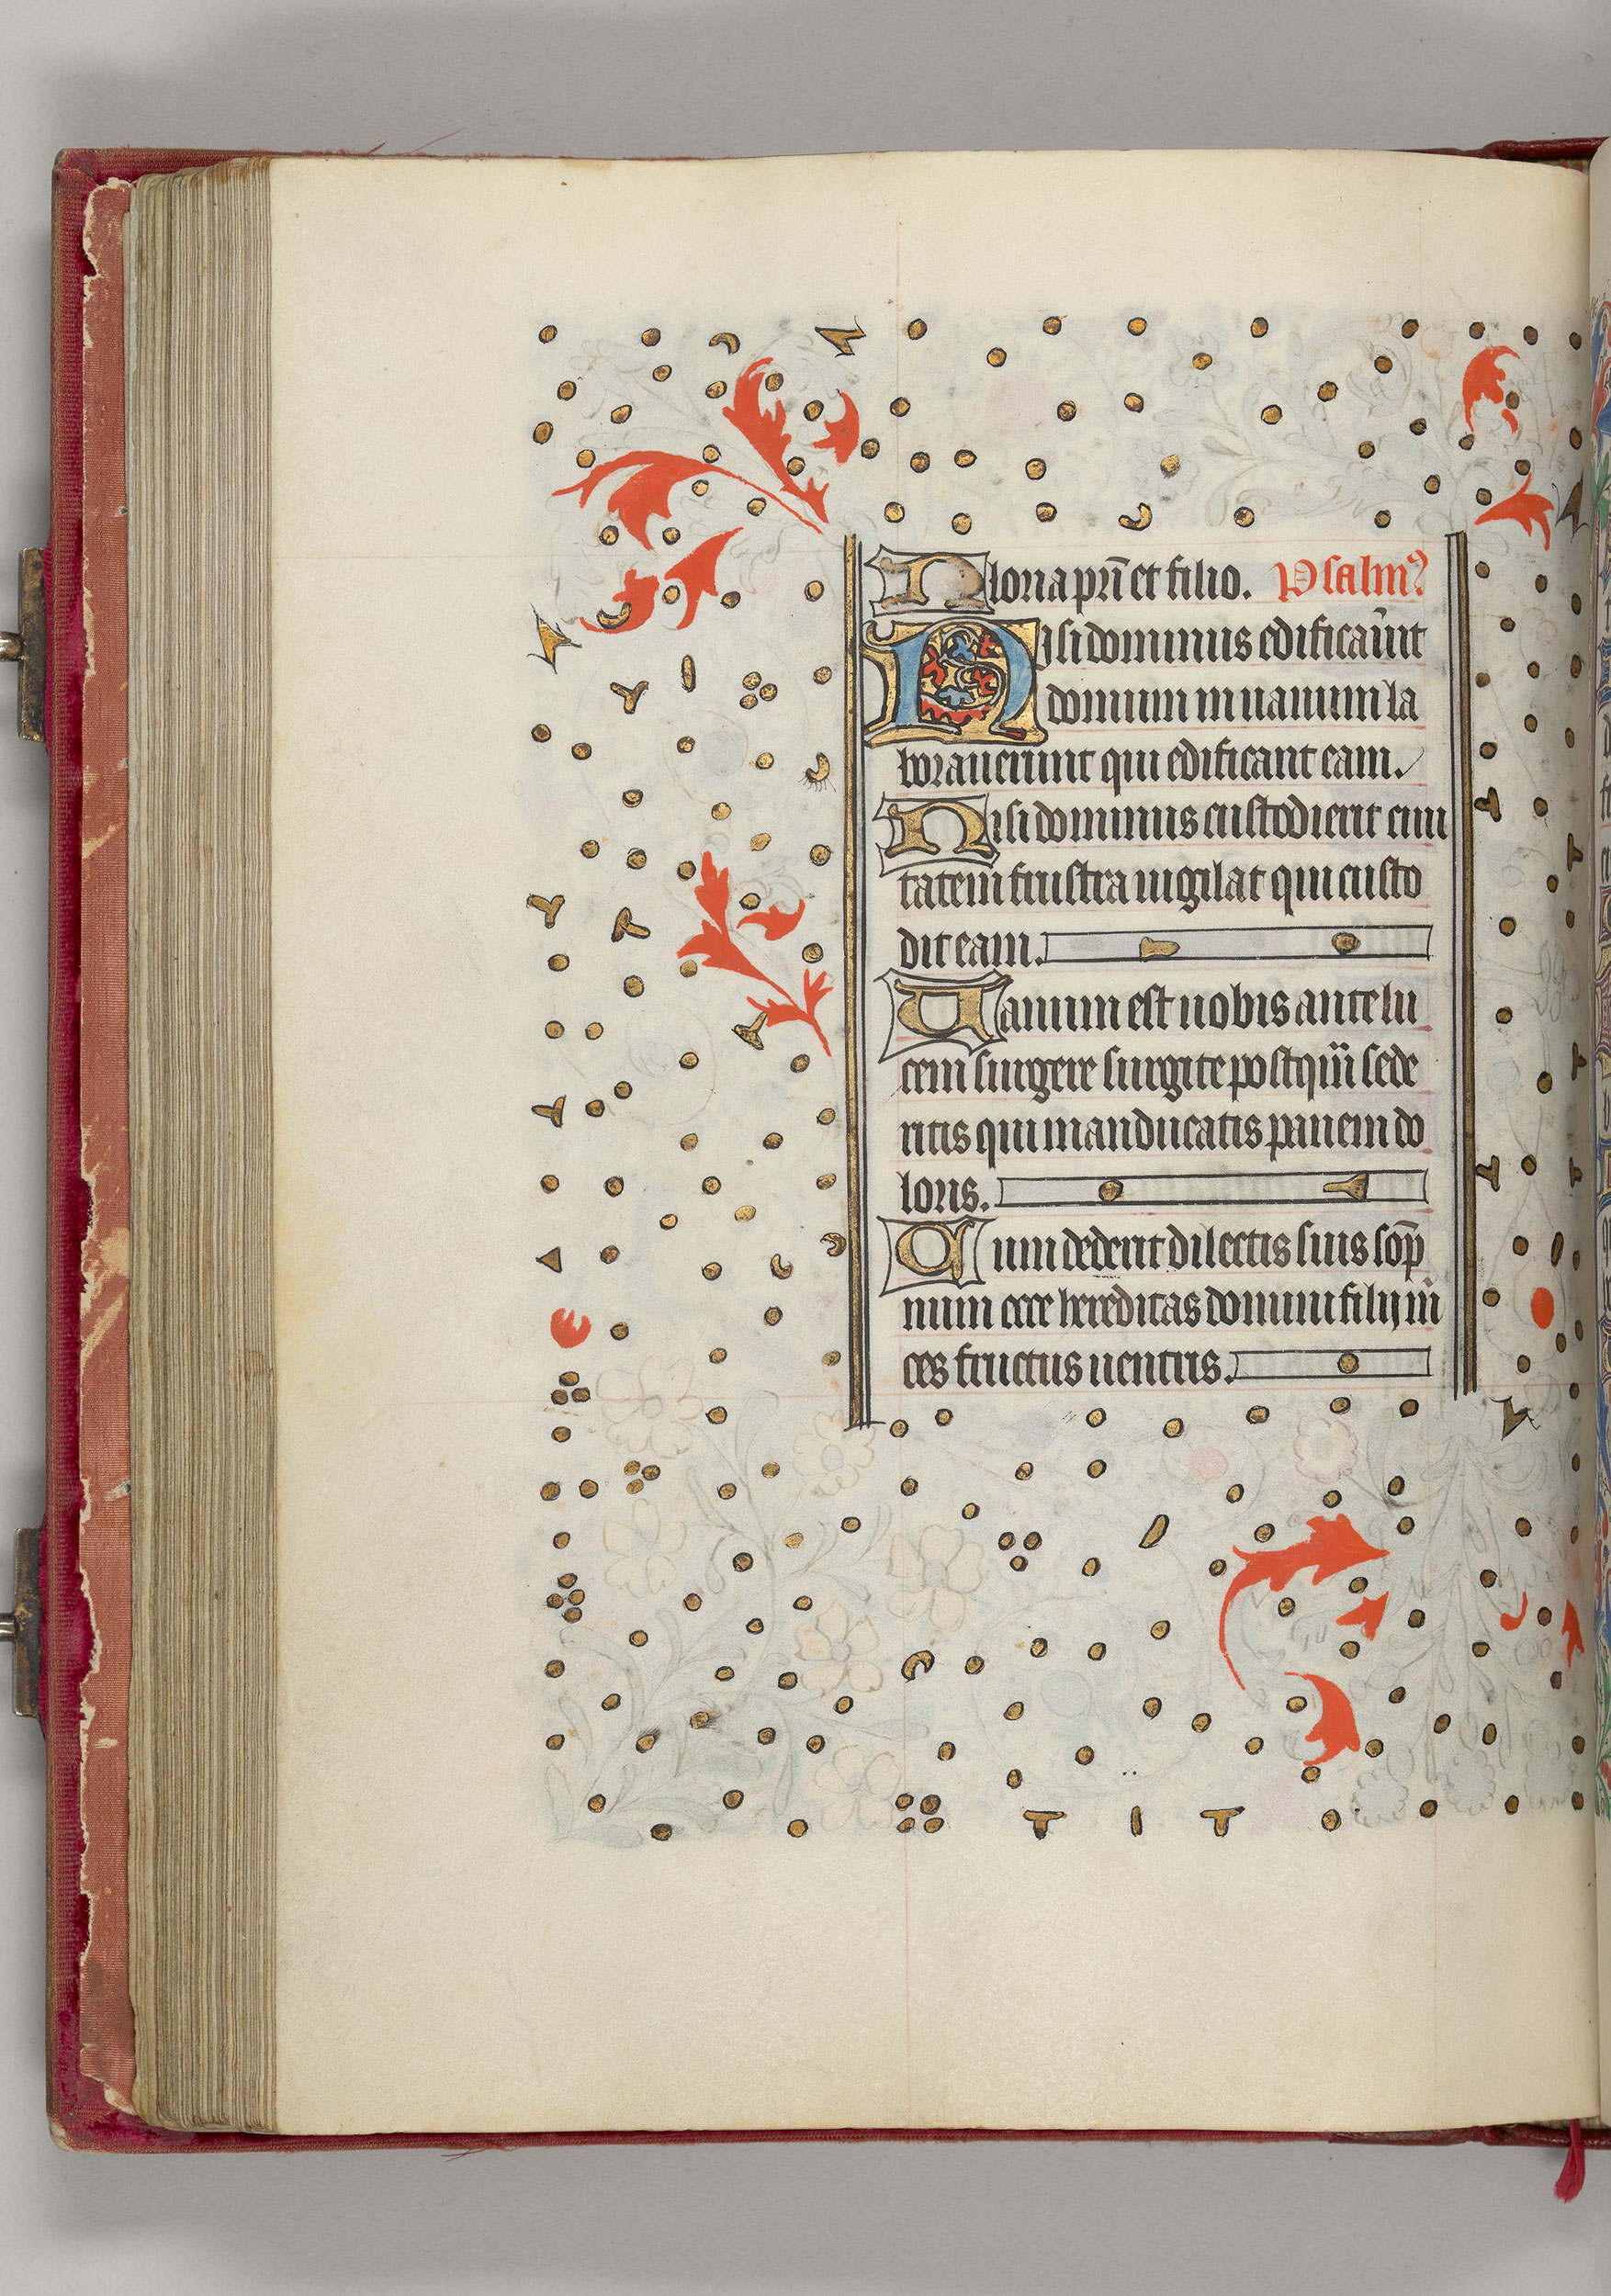 Gloria pri et filio. Psalmꝰ
Nisi dominus edificauit
domum in uanum la
borauerunt qui edificant eam.
Nisi dominus custodierit ciui
tatem frustra uigilat qui custo
dit eam.
Uanum est uobis ante lu
cem surgere surgite postqm̄ sede
ritis qui manducatis panem do
loris.
Cum dederit dilectis suis somp
num ecce hereditas domini filij m̄
ces fructus uentris.